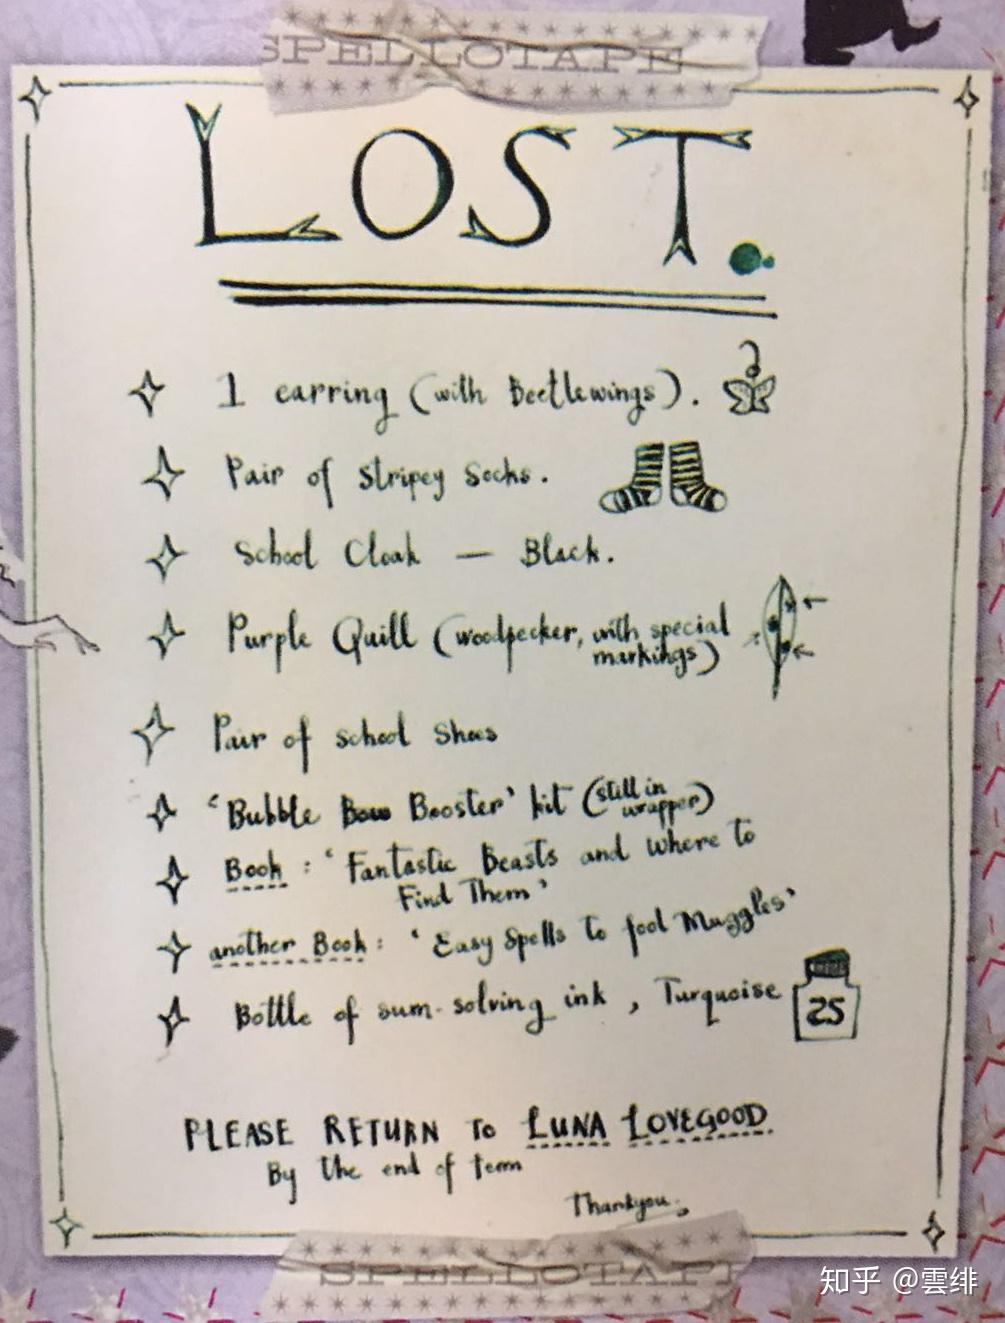 SPELLOTAPE
LOST.
1 earring (with Beetlewings).
Pair of Stripey Socks.
School Cloak — Black.
Purple Quill (woodpecker, with special
markings)
Pair of school Shoes
'Bubble Bow Booster' kit (still in
wrapper)
Book : 'Fantastic Beasts and where to
Find Them'
another Book : 'Easy Spells to fool Muggles'
Bottle of sum-solving ink, Turquoise
25
PLEASE RETURN To LUNA LOVEGOOD.
By the end of term
Thankyou.
SPELLOTAPE
知乎 @雲绯